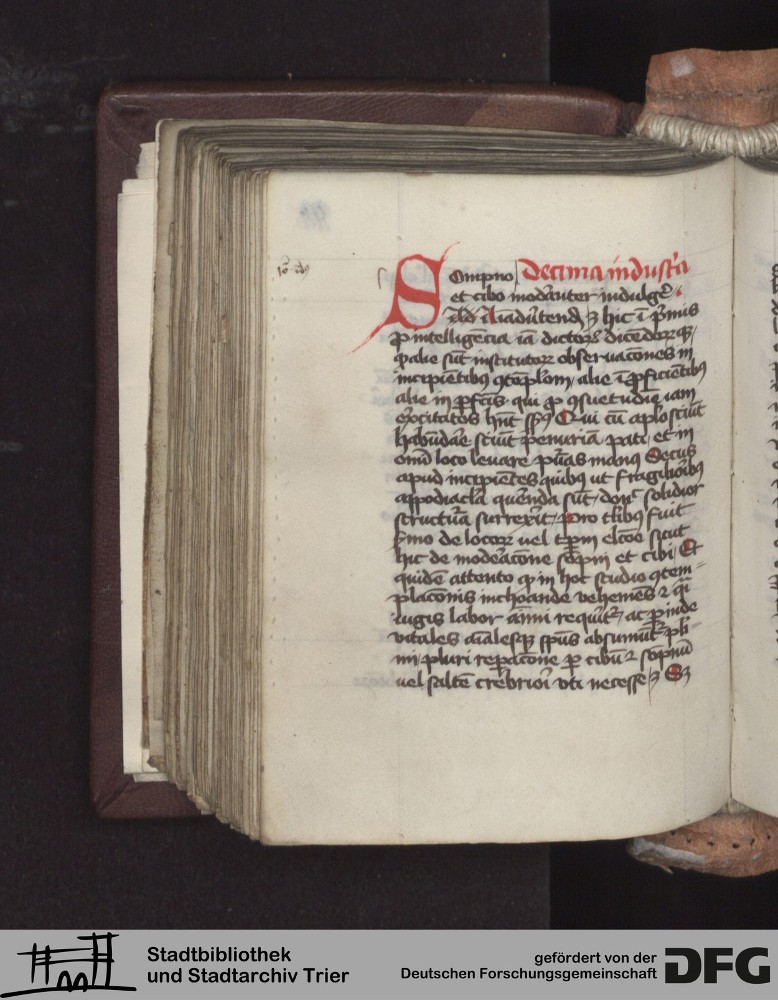 Sompno Decima industria
et cibo moderanter indulge.
hic in primis
pro intelligencia iam dictorum dicendorumque
quod alie sunt institutorum observacones in
incipientibus contemplacionem alie in proficientibus
alie in perfectis qui pro consuetudine iam
excitatos habent sensus Qui cum aplo sciunt
habundare sciunt penuriam pati et in
omni loco levare puras manus Secus
apud incipientes quibus ut fragilioribus
appodiacula querenda sunt donec solidior
structura surrexerit Pro talibus fuit
sermo de locorum vel temporum eleccione sicut
hic de moderacone sompni et cibi Et
quidem attento quod in hoc studio contem-
placonis inchoande vehemens et quasi
iugis labor animi requiritur ac perinde
vitales animalesque spiritus absumuntur pluri-
mi pluri reparacone per cibum et sopnum
vel saltem crebriori uti necesse est Sed
Stadtbibliothek
und Stadtarchiv Trier
gefördert von der
Deutschen Forschungsgemeinschaft
DFG